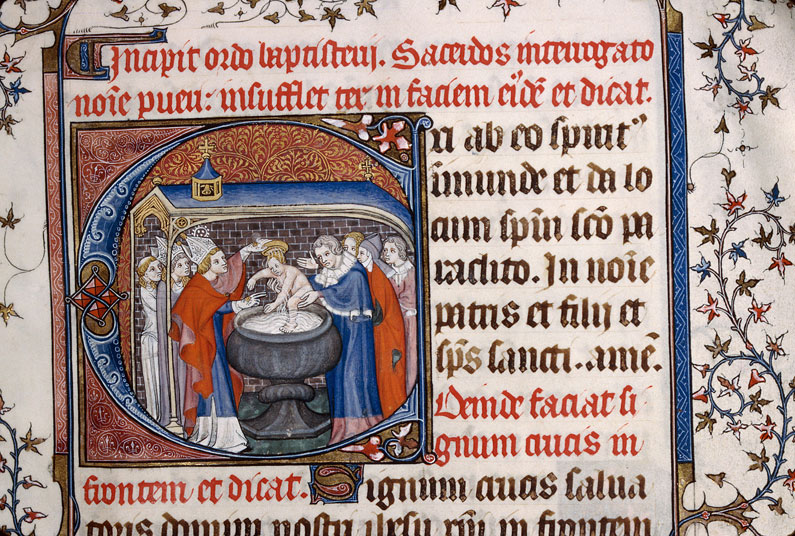 Incipit ordo baptisterij. Sacerdos interrogato
noīe pueri: insufflet ter in faciem eiꝰdē et dicat.
Exi ab eo spirit᷒
inmunde et da lo
cum spūi scō pa
raclito. In noīe
patris et filij et
sp̄s sancti. amē.
Deinde faciat si
gnum crucis in
frontem et dicat. Signum crucis salua
toris domini nostri ihesu xp̄i in frontem